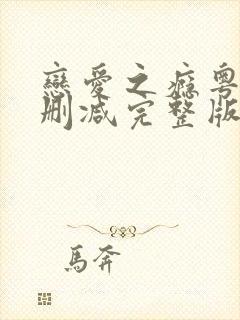 戀愛之癮粵
刪減完整版
馬奔